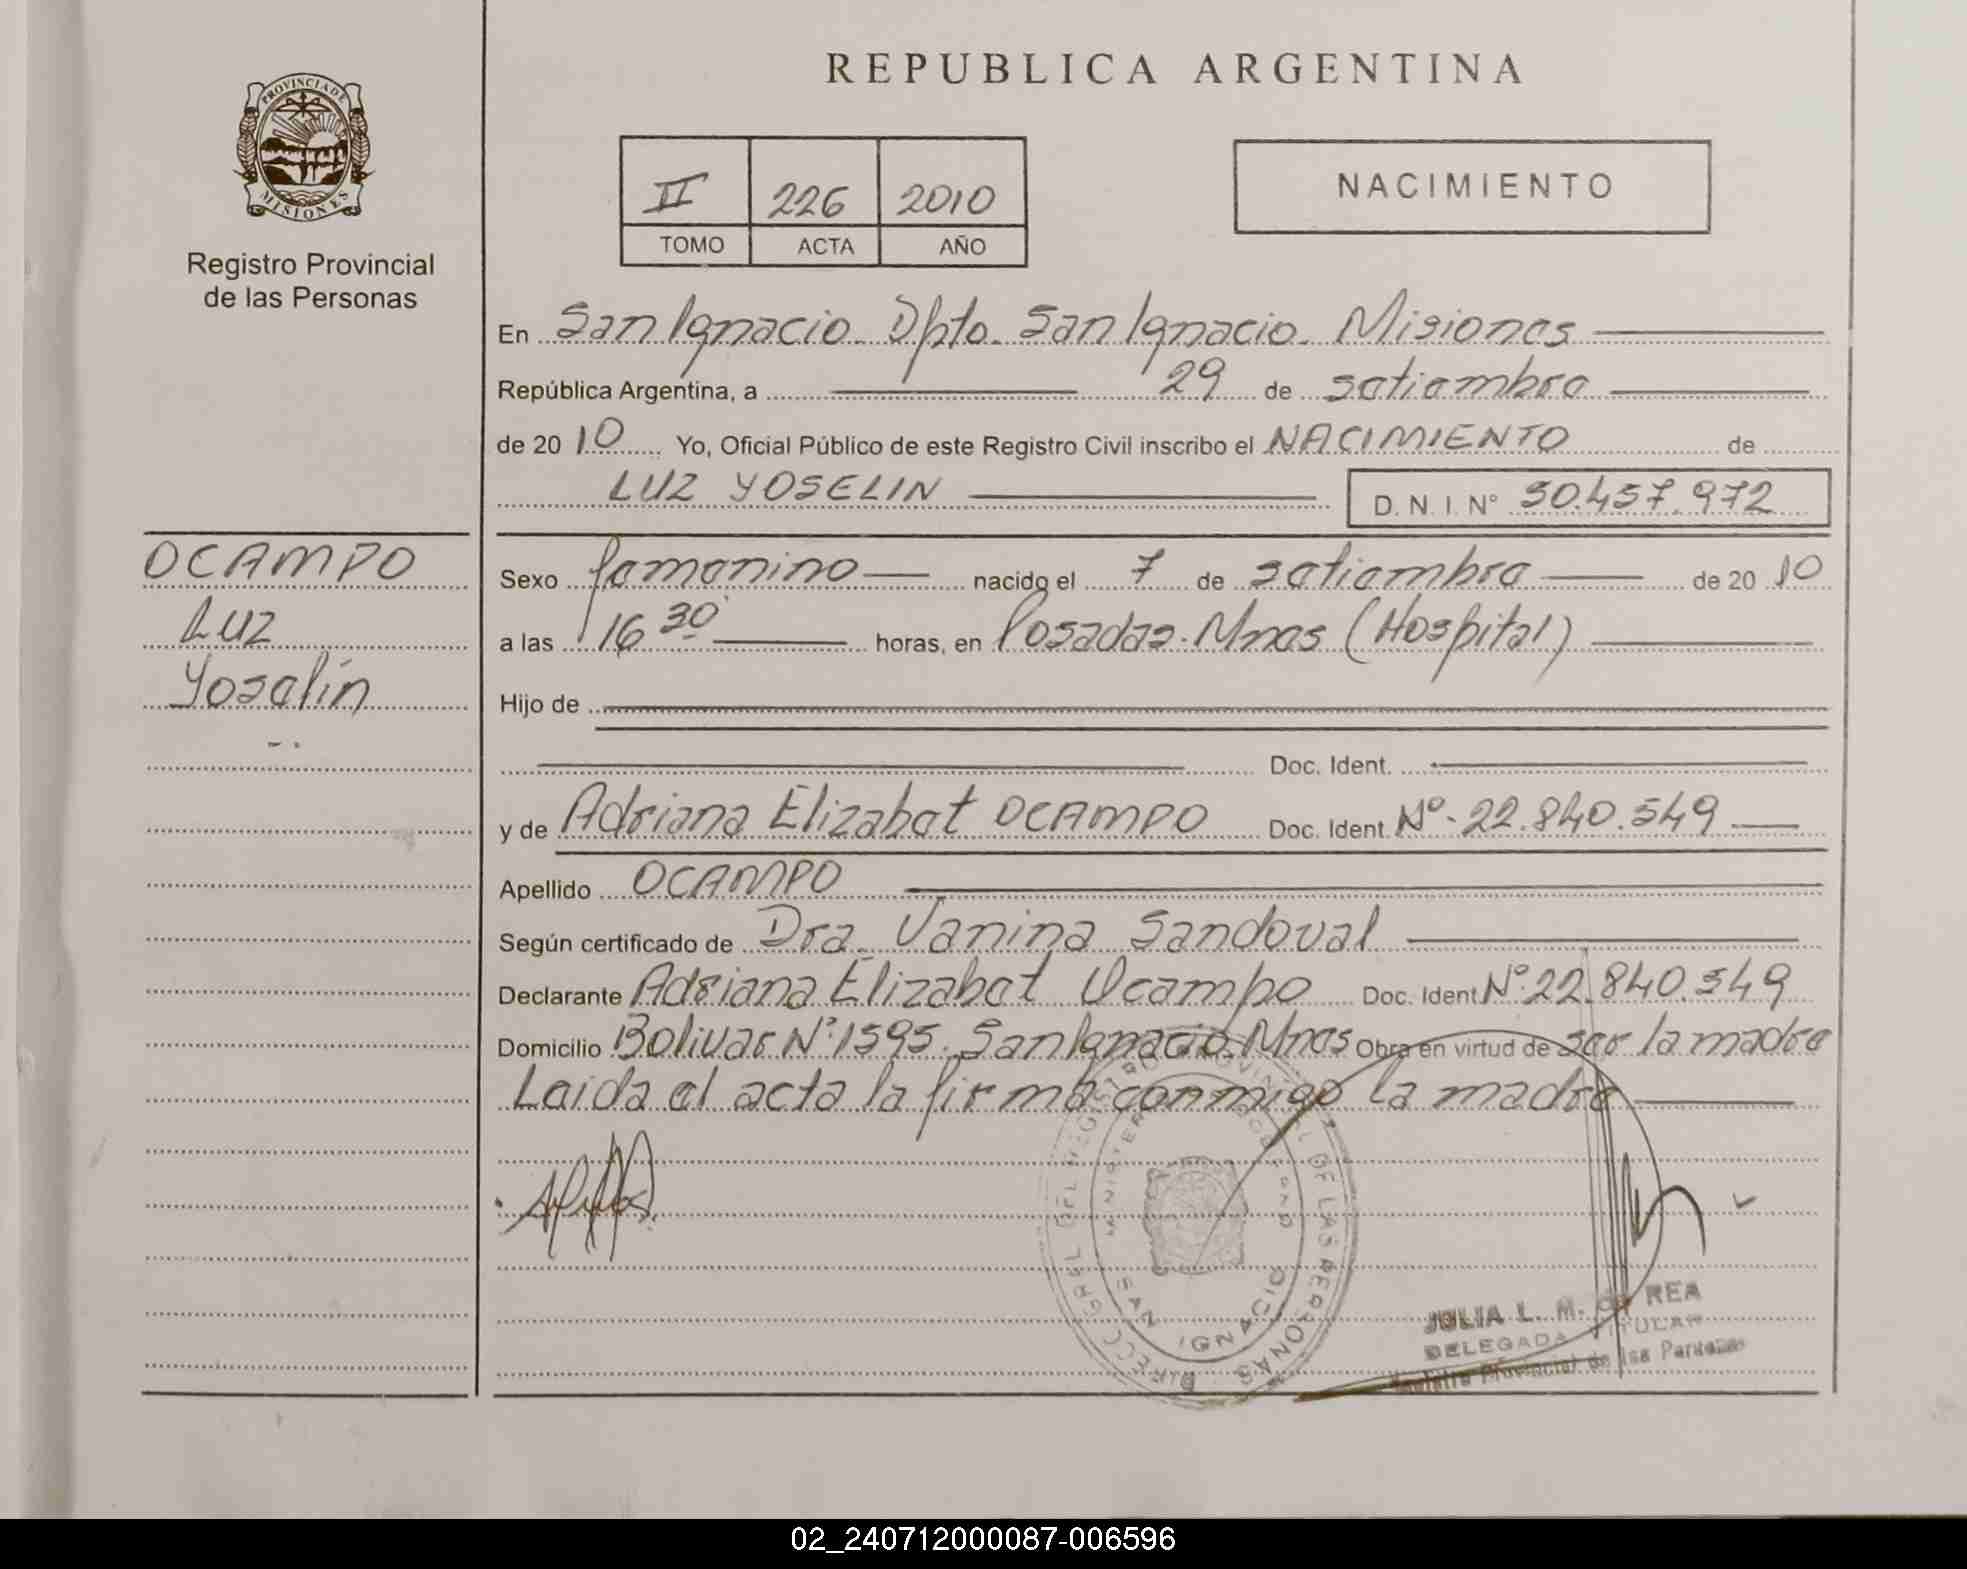 PROVINCIA DE
MISIONES
Registro Provincial
de las Personas
REPUBLICA ARGENTINA
II 226 2010
TOMO ACTA AÑO
NACIMIENTO
En San Ignacio. Dpto. San Ignacio. Misiones
República Argentina, a 29 de setiembre
de 20 10 Yo, Oficial Público de este Registro Civil inscribo el NACIMIENTO de
LUZ YOSELIN D.N.I. N° 50.457.972
OCAMPO
Luz
Yoselín
Sexo femenino nacido el 7 de setiembre de 20 10
a las 16 30 horas, en Posadas. Mnes (Hospital)
Hijo de
Doc. Ident.
y de Adriana Elizabet OCAMPO Doc. Ident. Nº. 22.840.549
Apellido OCAMPO
Según certificado de Dra. Vanina Sandoval
Declarante Adriana Elizabet Ocampo Doc. Ident. Nº. 22.840.549
Domicilio Bolivar Nº. 1595. San Ignacio. Mnes Obra en virtud de ser la madre
Leida el acta la firma conmigo la madre
DIRECC. GRAL. DEL REGISTRO PROVINCIAL DE LAS PERSONAS
SAN IGNACIO
JULIA L. M. REA
DELEGADA TITULAR
Registro Provincial de las Personas
02_240712000087-006596